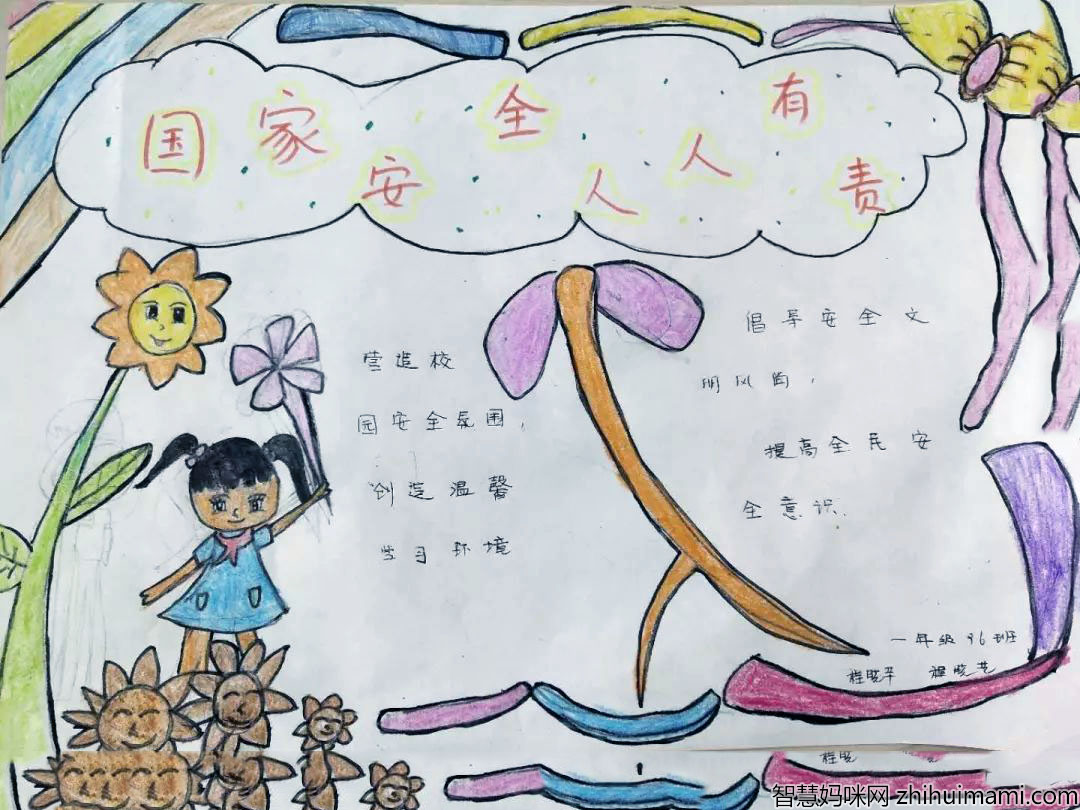 国家安全人人有责
营造校
园安全氛围，
创造温馨
学习环境
倡导安全文
明风尚，
提高全民安
全意识.
一年级96班
程晓 程晓艺
程晓
智慧妈咪网-zhihuimami.com